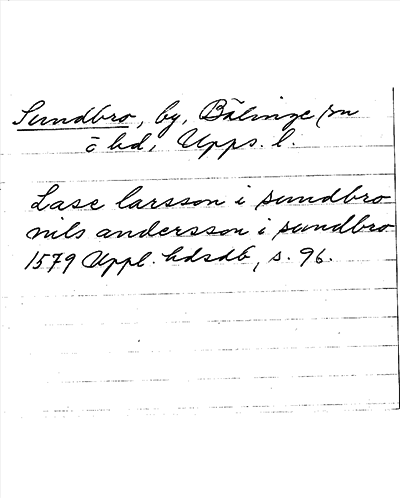 Sundbro, by, Bälinge sn
o hd, Upps. l.
Lasc larsson i sundbro
nils andersson i sundbro
1579 Uppl. hdsdb, s. 96.